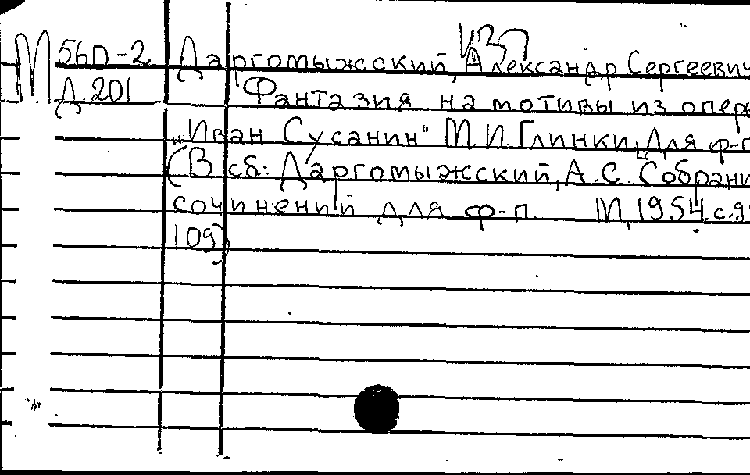 М 560-2 Даргомыжский, Александр Сергеевич
Д 201 Фантазия на мотивы из оперы
„Иван Сусанин" М.И.Глинки, для ф-п.
(В сб: Даргомыжский, А.С. Собрани
сочинений для ф-п. М, 1954. с.
109)